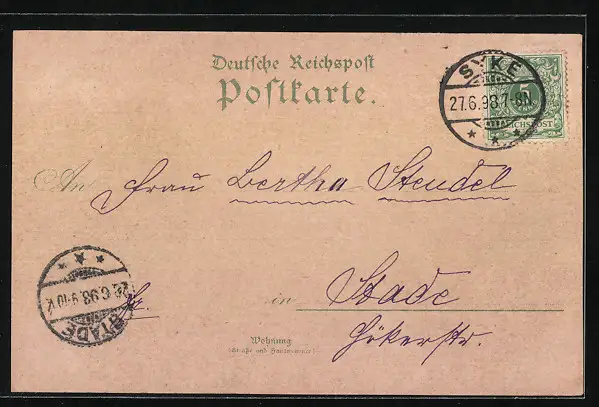 Deutsche Reichspost
Postkarte.
SYKE
27.6.98.7-8N.
5
REICHSPOST
An Frau Bertha Stendel
in Stade
Hökerstr.
STADE
28.6.98.9-10V.
Fr.
Wohnung
(Straße und Hausnummer)